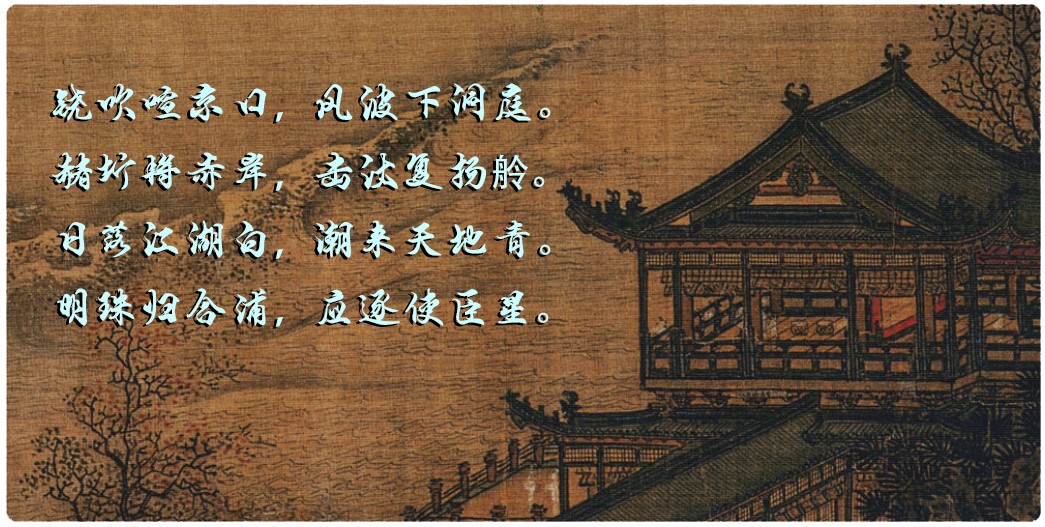 铙吹喧京口，风波下洞庭。
赭圻将赤岸，击汰复扬舲。
日落江湖白，潮来天地青。
明珠归合浦，应逐使臣星。